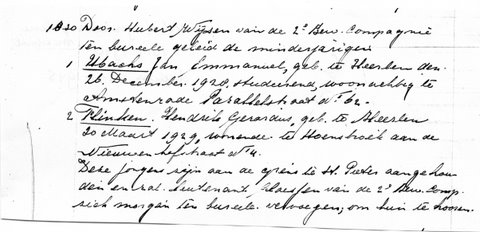 1830 Door Hubert Wijsen van de 2e Bew. Compagnie
ten bureele geleid de minderjarigen
1 Ubachs Jan Emmanuel, geb. te Heerlen den
26 December 1928, studeerend, woonachtig te
Amstenrade Parallelstraat No 62.
2 Flinsen. Hendrik Gerardus, geb. te Heerlen
20 Maart 1929, wonende te Hoensbroek aan de
Nieuwenhofstraat No 4.
Deze jongens zijn aan de grens te St. Pieter aangehou
den en zal Lieutenant, Claessen van de 2e Bew. Comp.
zich morgen ten bureele vervoegen, om hun te hooren.